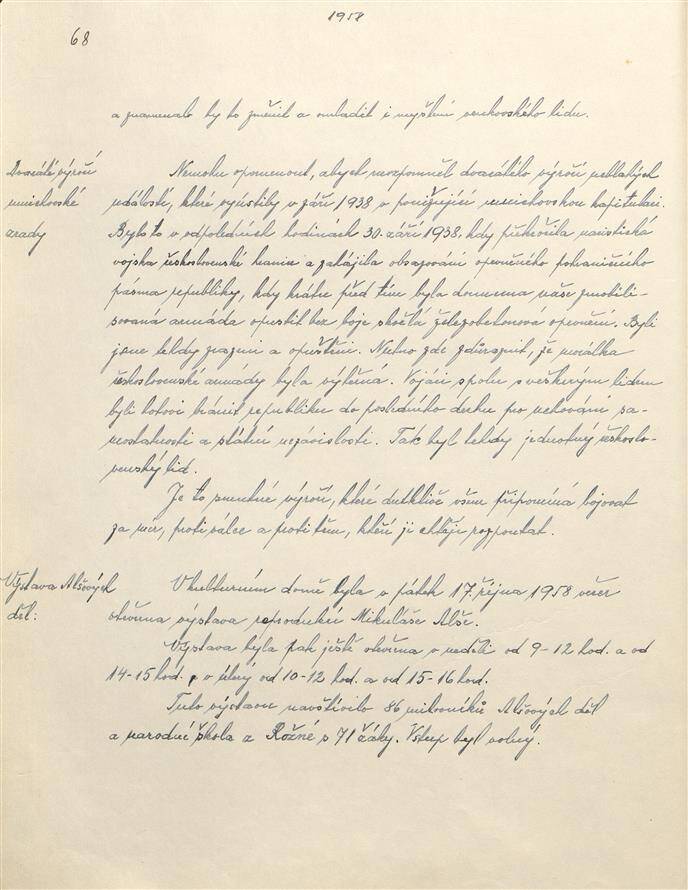 1958
68
a znamenalo by to změnit a omladit i myšlení venkovského lidu.
Dvacáté výročí
mnichovské
zrady
Nemohu opomenout, abych nevzpomněl dvacátého výročí neblahých
událostí, které vyústily v září 1938 v ponižující mnichovskou kapitulaci.
Bylo to v odpoledních hodinách 30. září 1938, kdy překročila nacistická
vojska československé hranice a zahájila obsazování opevněného pohraničního
pásma republiky, kdy krátce před tím byla donucena naše zmobili-
sovaná armáda opustit bez boje skvělá železobetonová opevnění. Byli
jsme tehdy zrazeni a opuštěni. Nutno zde zdůraznit, že morálka
československé armády byla výtečná. Vojáci spolu s veškerým lidem
byli hotovi bránit republiku do posledního dechu pro uchování sa-
mostatnosti a státní nezávislosti. Tak byl tehdy jednotný českoslo-
venský lid.
Je to smutné výročí, které důtklivě všem připomíná bojovat
za mír, proti válce a proti těm, kteří ji chtějí rozpoutat.
Výstava Alšových
děl:
V kulturním domě byla v pátek 17. října 1958 večer
otevřena výstava reprodukcí Mikuláše Alše.
Výstava byla pak ještě otevřena v neděli od 9-12 hod. a od
14-15 hod., v úterý od 10-12 hod. a od 15-16 hod.
Tuto výstavu navštívilo 86 milovníků Alšových děl
a národní škola z Rožné s 71 žáky. Vstup byl volný.